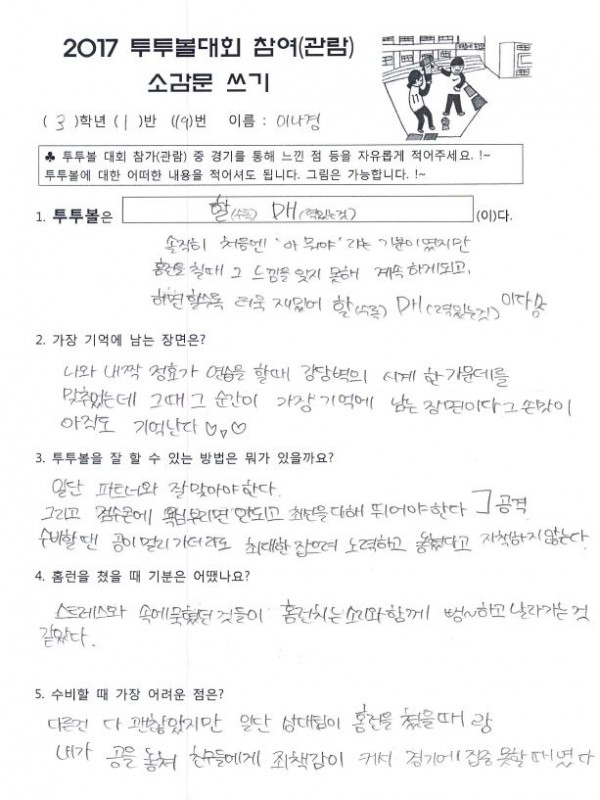 2017 투투볼대회 참여(관람)
소감문 쓰기
( 3 )학년 ( 1 )반 (19)번 이름 : 이나경
♣ 투투볼 대회 참가(관람) 중 경기를 통해 느낀 점 등을 자유롭게 적어주세요. !~
투투볼에 대한 어떠한 내용을 적어셔도 됩니다. 그림은 가능합니다. !~
1. 투투볼은 할(수록) DH(재밌는것) (이)다.
솔직히 처음엔 '아 뭐야' 라는 기분이였지만
홈런을 칠때 그 느낌을 잊지 못해 계속하게되고,
하면 할수록 더욱 재밌어 할(수록) DH(재밌는것) 이다
2. 가장 기억에 남는 장면은?
나와 내짝 정효가 연습을 할때 강당벽의 시계 한가운데를
맞추었는데 그때 그 순간이 가장 기억에 남는 장면이다 그 손맛이
아직도 기억난다 ♡,♡
3. 투투볼을 잘 할 수 있는 방법은 뭐가 있을까요?
일단 파트너와 잘맞아야한다.
그리고 점수판에 욕심부리면 안되고 최선을다해 뛰어야한다 ] 공격
수비할땐 공이 멀리 가더라도 최대한 잡으려 노력하고 놓쳤다고 자책하지않는다.
4. 홈런을 쳤을 때 기분은 어땠나요?
스트레스와 속에묵혔던 것들이 홈런치는소리와함께 뻥~하고 날라가는 것
같았다.
5. 수비할 때 가장 어려운 점은?
다른건 다 괜찮았지만 일단 상대팀이 홈런을 쳤을때 랑
내가 공을 놓쳐 친구들에게 죄책감이 커서 경기에 집중 못할때였다